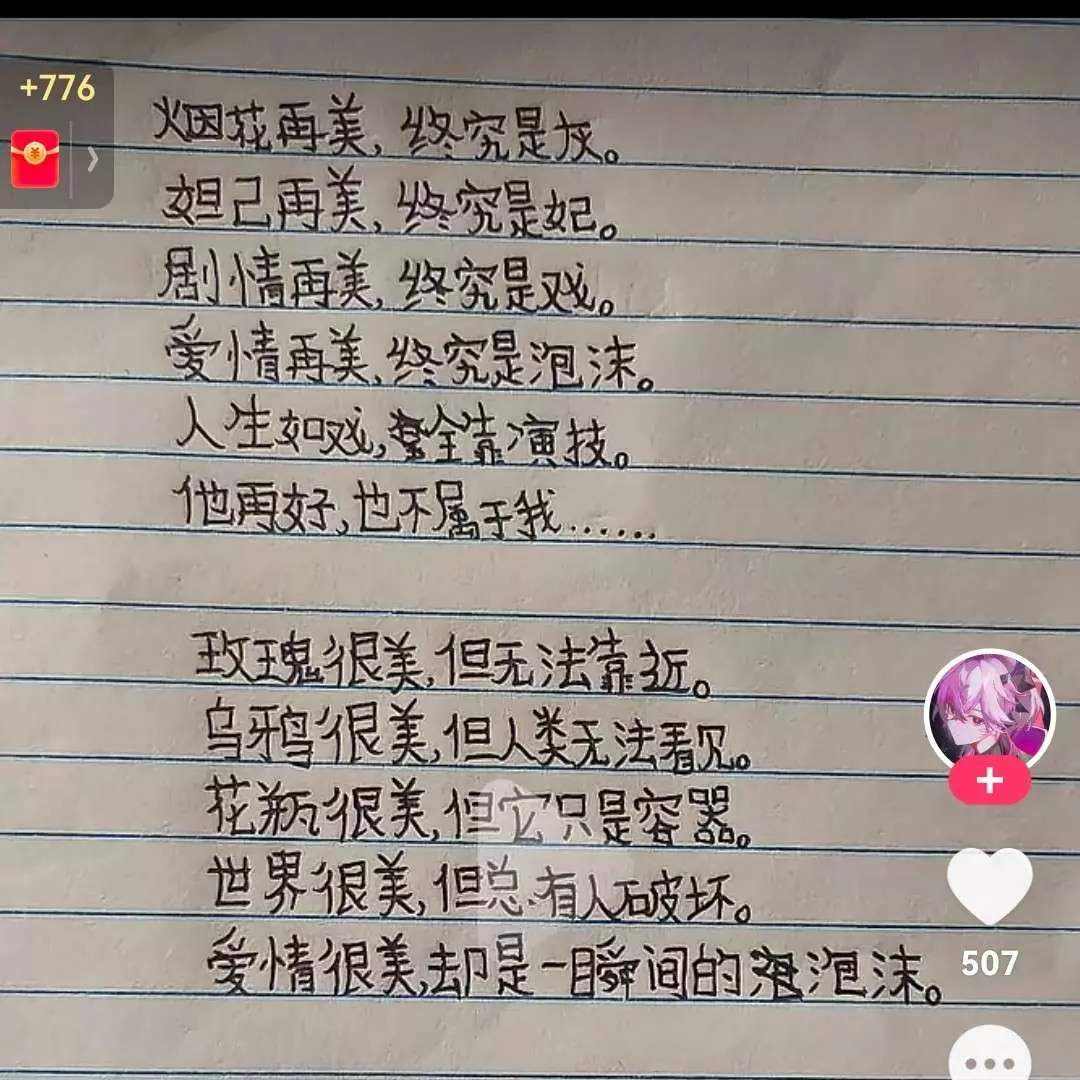 +776
烟花再美，终究是灰。
妲己再美，终究是妃。
剧情再美，终究是戏。
爱情再美，终究是泡沫。
人生如戏，全靠演技。
他再好，也不属于我……
玫瑰很美，但无法靠近。
乌鸦很美，但人类无法看见。
花瓶很美，但它只是容器。
世界很美，但总有人破坏。
爱情很美，却是一瞬间的泡沫。
507